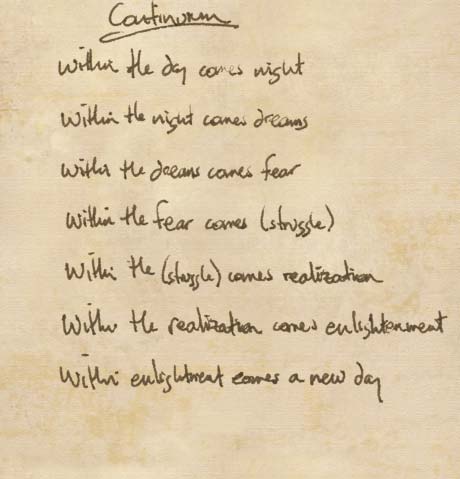 Continuum
Within the day comes night
Within the night comes dreams
Within the dreams comes fear
Within the fear comes (struggle)
Within the (struggle) comes realization
Within the realization comes enlightenment
Within enlightment comes a new day